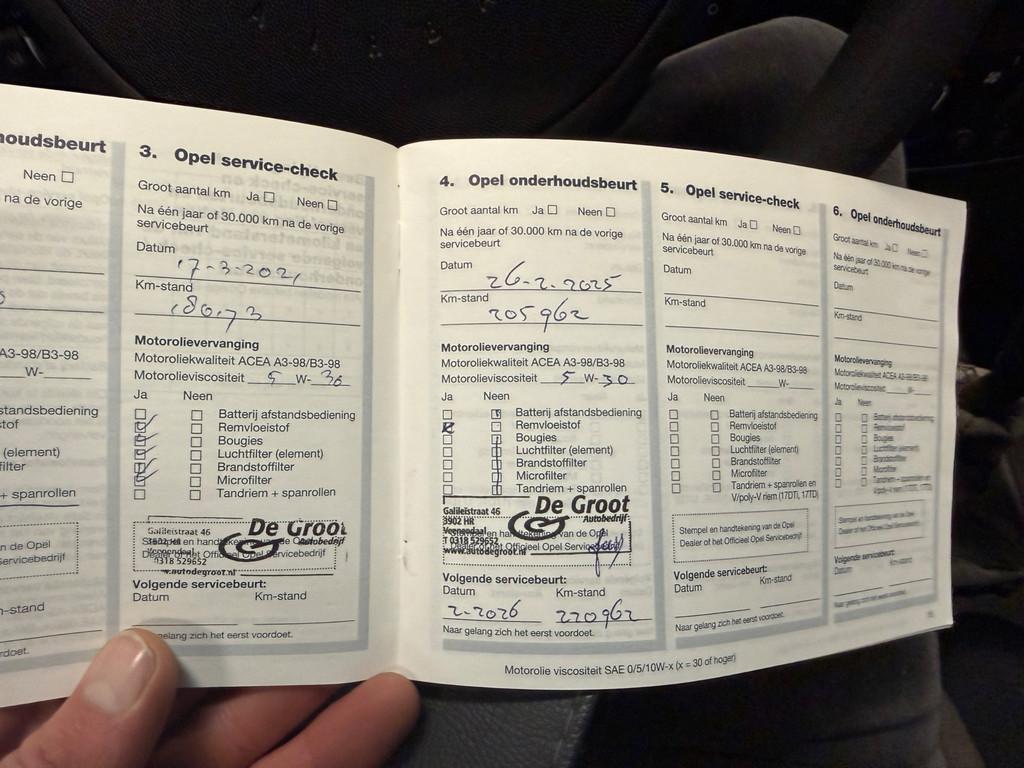 houdsbeurt
Neen
na de vorige
A3-98/B3-98
W-
standsbediening
stof
(element)
filter
+ spanrollen
n de Opel
Servicebedrijf
m-stand
rdoet.
3. Opel service-check
Groot aantal km Ja Neen
Na één jaar of 30.000 km na de vorige
servicebeurt
Datum
17-3-2021
Km-stand
Motorolievervanging
Motoroliekwaliteit ACEA A3-98/B3-98
Motorolieviscositeit 5 W-30
Ja Neen
Batterij afstandsbediening
Remvloeistof
Bougies
Luchtfilter (element)
Brandstoffilter
Microfilter
Tandriem + spanrollen
De Groot
Autobedrijf
Galileistraat 46
3902 HR
Veenendaal
0318 529652
www.autodegroot.nl
Volgende servicebeurt:
Datum Km-stand
gelang zich het eerst voordoet.
4. Opel onderhoudsbeurt
Groot aantal km Ja Neen
Na één jaar of 30.000 km na de vorige
servicebeurt
Datum
26-2-2025
Km-stand
205962
Motorolievervanging
Motoroliekwaliteit ACEA A3-98/B3-98
Motorolieviscositeit 5 W-30
Ja Neen
Batterij afstandsbediening
Remvloeistof
Bougies
Luchtfilter (element)
Brandstoffilter
Microfilter
Tandriem + spanrollen
De Groot
Autobedrijf
Galileistraat 46
3902 HR
Veenendaal
T 0318 529652
www.autodegroot.nl
Stempel en handtekening van de Opel
Dealer of het Officieel Opel Servicebedrijf
Volgende servicebeurt:
Datum Km-stand
2-2026 220962
Naar gelang zich het eerst voordoet.
5. Opel service-check
Groot aantal km Ja Neen
Na één jaar of 30.000 km na de vorige
servicebeurt
Datum
Km-stand
Motorolievervanging
Motoroliekwaliteit ACEA A3-98/B3-98
Motorolieviscositeit W-
Ja Neen
Batterij afstandsbediening
Remvloeistof
Bougies
Luchtfilter (element)
Brandstoffilter
Microfilter
Tandriem + spanrollen en
V/poly-V riem (17DTI, 17TD)
Stempel en handtekening van de Opel
Dealer of het Officieel Opel Servicebedrijf
Volgende servicebeurt:
Datum Km-stand
Naar gelang zich het eerst voordoet.
6. Opel onderhoudsbeurt
Groot aantal km Ja Neen
Na één jaar of 30.000 km na de vorige
servicebeurt
Datum
Km-stand
Motorolievervanging
Motoroliekwaliteit ACEA A3-98/B3-98
Motorolieviscositeit W-
Ja Neen
Batterij afstandsbediening
Remvloeistof
Bougies
Luchtfilter (element)
Brandstoffilter
Microfilter
Tandriem + spanrollen en
V/poly-V riem (17DTI, 17TD)
Stempel en handtekening van de Opel
Dealer of het Officieel Opel Servicebedrijf
Volgende servicebeurt:
Datum Km-stand
Naar gelang zich het eerst voordoet.
Motorolie viscositeit SAE 0/5/10W-x (x = 30 of hoger)